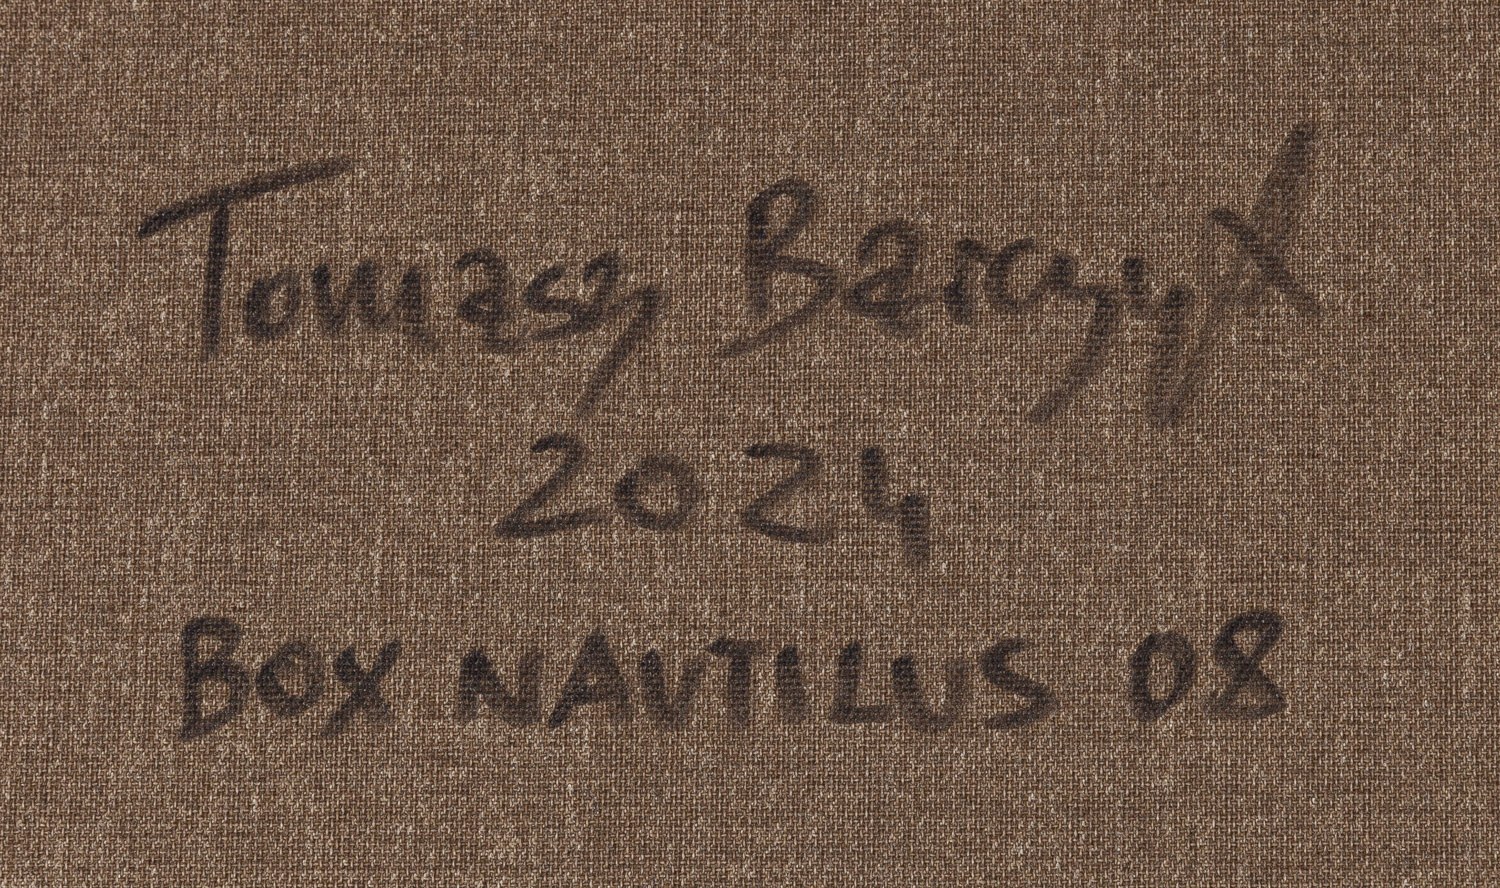 Tomasz Barczyk
2024
BOX NAUTILUS 08